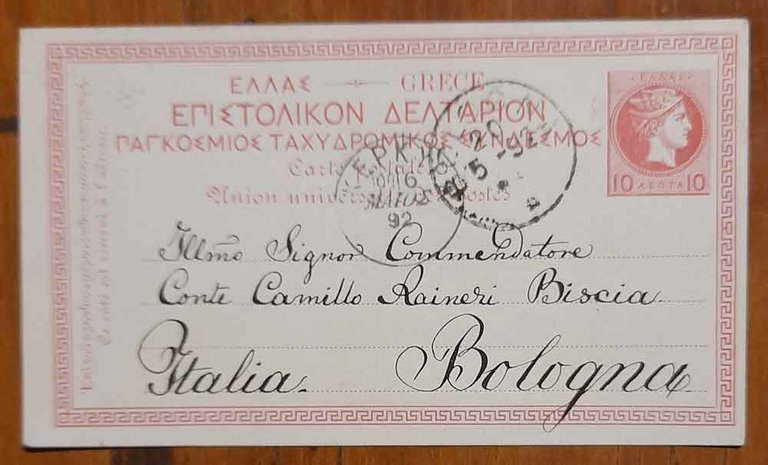 ΕΛΛΑΣ GRECE
ΕΠΙΣΤΟΛΙΚΟΝ ΔΕΛΤΑΡΙΟΝ
ΠΑΓΚΟΣΜΙΟΣ ΤΑΧΥΔΡΟΜΙΚΟΣ ΣΥΝΔΕΣΜΟΣ
Carte
Union Postes
ΕΛΛΑΣ
10 ΛΕΠΤΑ 10
ΚΕΡΚΥΡΑ
6
ΜΑΙΟΣ
92
20
5-92
Illmo Signor Commendatore
Conte Camillo Raineri Biscia
Italia. Bologna